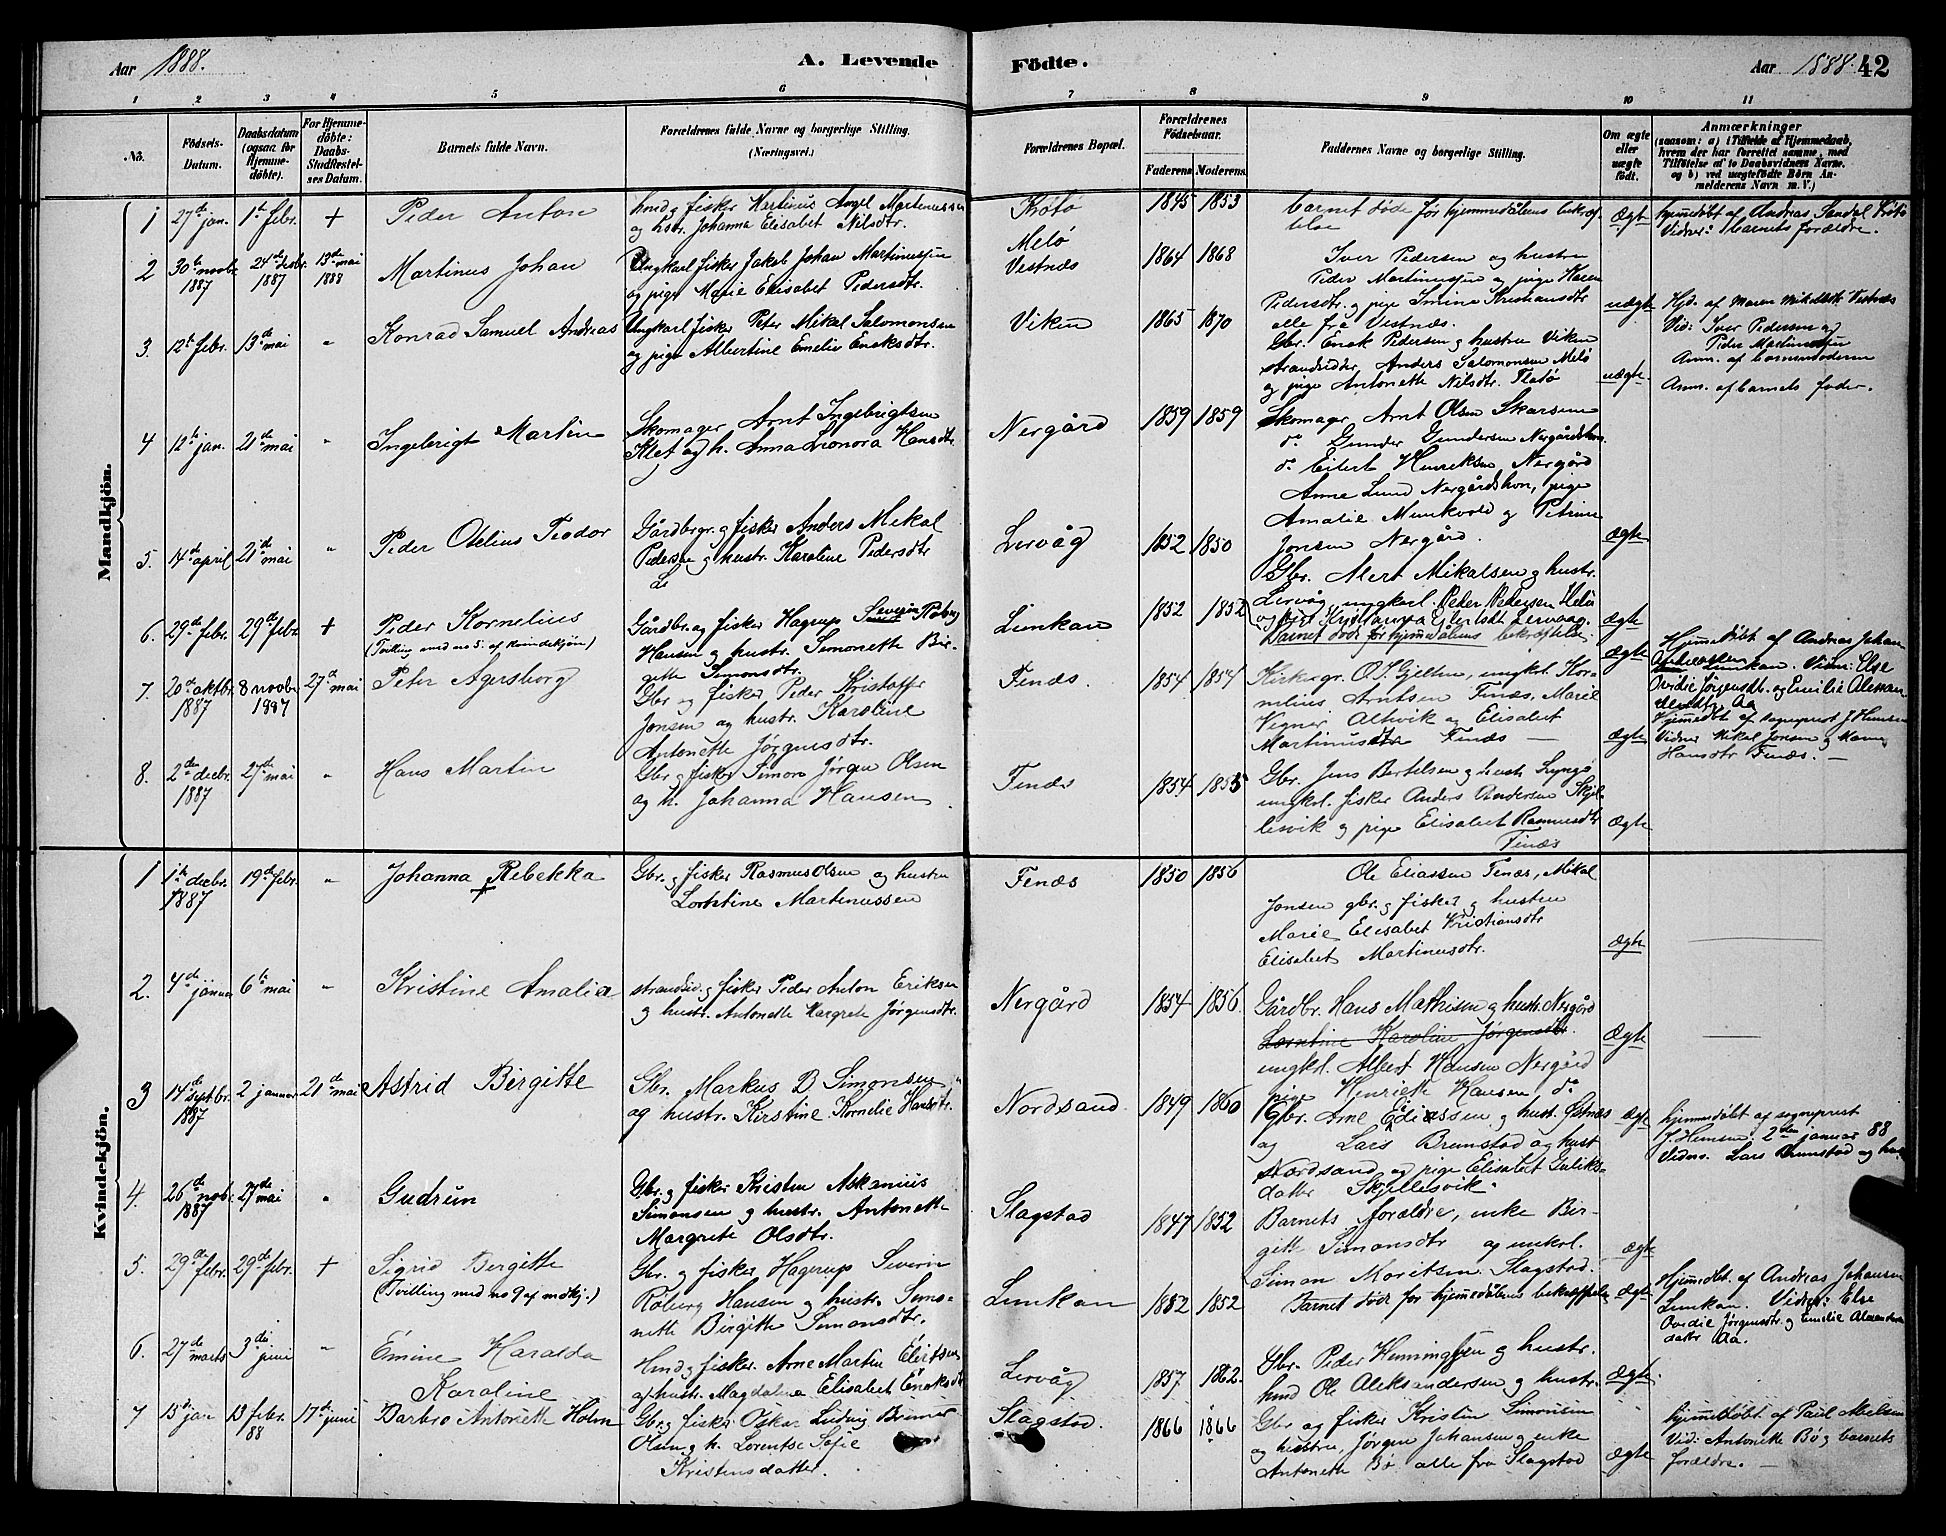 Aar 1888.
A. Levende Födte.
Aar 1888. 42
1 2 3 4 5 6 7 8 9 10 11
No.
Födsels-Datum.
Daabsdatum (ogsaa for Hjemme-döbte).
For Hjemme-döbte: Daabs-Stadfæstel-ses Datum.
Barnets fulde Navn.
Forældrenes fulde Navne og borgerlige Stilling. (Næringsvei.)
Forældrenes Bopæl.
Forældrenes Fødselsaar.
Faderens. Moderens.
Faddernes Navne og borgerlige Stilling.
Om ægte eller uægte födt.
Anmærkninger
(saasom: a) i Tilfælde af Hjemmedaab, hvem der har forrettet samme, med Tilföielse af to Daabsvidners Navne, og b) ved uægtefödte Börn Anmelderens Navn m. V.)
Mandkjön.
1 27de jan. 1te febr. + Peder Anton
og hstr. Johanna Elisabet Nilsdtr.
1845 1853
barnet døde før hjemmedåbens bekræftelse
ægte
hjemedøbt af Andreas Sandal
Vidner: barnets forældre.
2 30te novbr. 1887 24de desbr. 1887 13de mai 1888 Martinus Johan
Ungkarl fisker Jakob Johan Martinussen
og pige Marie Elisabet Pedersdtr.
Melø Vestnæs
1864 1868
Iver Pedersen og hustru
Peder Martinussen og pige Karen
Pedersdtr. og pige Imina Kristiansdtr
alle fra Vestnæs.
uægte
Hjd. af Maren Mikelsdtr. Vestnæs
Vid: Iver Pedersen og
Peder Martinussen
Anm. af barnemoderen
3. 12te febr. 13de mai " Konrad Samuel Andreas
Ungkarl fisker Peter Mikal Salomonsen
og pige Albertine Emelie Enoksdtr.
Viken
1865 1870
Gbr. Enok Pedersen og hustru Viken
strandsidder Anders Salomonsen Melø
og pige Antonette Nilsdtr. Flatø
uægte.
Anm. af barnets fader.
4 12te jan. 21de mai " Ingebrigt Martin
Skomager Arnt Ingebrigtsen
Klet og h. Anna Lionora Hansdtr.
Nergård
1859 1859
Skomager Arnt Olsen Skarsem
do Gunder Gundersen Nergårdshon.
do Eilert Henriksen Nergård
Anne Lund Nergårdshon, pige
Amalie Munkvold og Petrine
Jonsen Nergård.
ægte
5. 14de april 21de mai " Peder Otelius Teodor
Gårdbrgr. og fisker Anders Mikal
Pedersen og hustr. Karoline Pedersdtr
Le
Lervåg
1852 1850
Gbr. Alert Mikalsen og hustr.
Lervåg ungkarl. Peter Pedersen Melø
ægte
6. 29de febr. 29de febr + Peder Kornelius
(Tvilling med no 5. af kvindekjøn)
Gårdbr. og fisker Hagrup Severin Roberg
Hansen og hustr. Simonette Birgitte
Simonsdtr.
Limkan
1852 1852
Barnet døde før hjemedåbens bekræftelse.
ægte
Hjemmedøbt af Andreas Johan
Limkan. Vidner: Else
Ovidie Jørgensdtr. og Emilie Alexandersdtr. Aa
7. 20de oktbr. 1887 8 novbr 1887 27de mai Peter Agersborg
Gbr og fisker Peder Kristoffer
Jonsen og hustr. Karoline
Antonette Jørgensdtr.
Finæs.
1854 1854
Kirkesgr. O. S. Gjelten, ungkl. Kornelius
Arntsen Finæs, Marie
Vegner Altevik og Elisabet
Martinusdtr Finæs
ægte
Hjemedbt af sogneprest J Hemsen
Vidner Mikal Jonsen og Karen
Hansdtr Finæs.
8. 2den decbr. 1887 27de mai " Hans Martin
Gbr. og fisker Simon Jørgen Olsen
og h. Johanna Hansen
Finæs
1854 1855
Gbr. Jens Bertelsen og hustr. Lyngø
ungkrl. fisker Anders Andersen Skjellesvik
og pige Elisabet Rasmusdtr
Finæs
ægte
Kvindekjön.
1 1te decbr. 1887 19de febr. " Johanna Rebekka
Gbr. og fisker Rasmus Olsen og hustru
Martinussen
Finæs
1850 1856
Ole Eliassen Finæs, Mikal
Jonsen gbr. og fisker og hustru
Marie Elisabet Kristiansdtr
Elisabet Martinusdtr.
ægte
2. 4de januar 6te mai " Kristine Amalia
strandsid. og fisker Peder Anton Eriksen
og hustr. Antonette Margrete Jørgensdtr.
Nergård
1854 1856
Gårdbr. Hans Mathisen og hustr. Nergård
Karoline Jørgensdtr.
ungkrl. Albert Hansen Nergård
pige Henriette Hansen do
Ægte
3 14de septbr. 1887 2 januar 21de mai Astrid Birgitte
Gbr. Markus B Simonsen
og hustr. Kirstine Kornelie Hansdtr.
Nordsand
1849 1860
Gbr. Arne Eliassen og hustr. Østnæs
og Lars Brunstad og hust
Nordsand og pige Elisabet Guliksdatter
Skjellesvik.
ægte
hjemmedøbt af sogneprest
J. Hemsen. 2den januar 88
Vidner. Lars Brunstad og hus
4. 26de nobr. 1887 27de mai " Gudrun
Gbr. og fisker Kristen Askanius
Simonsen og hustr. Antonette
Margrete Olsdtr.
Slagstad
1847 1852
Barnets forældre, enke Birgitte
Simonsdtr og unkrl.
Simon Moritsen Slagstad.
ægte
5. 29de febr. 29de febr. + Sigrid Bergitte
(Tvilling med no 9 af mdkj.)
Gbr. og fisker Hagerup Severin
Roberg Hansen og hustr. Simonette
Birgitte Simonsdtr.
Limkan
1882 1852
Barnet døde før hjemedåbens bekræftelse
ægte
Hjemedbt. af Andreas Johansen
Limkan. Vidner: Else
Ovidie Jørgensdtr. og Emilie Alexandersdatter
Aa.
6. 27de marts 3die juni " Emine Haralda
Karoline
Hmd og fisker. Arne Martin Eliertsen
og hustr. Magdalena Elisabet Enoksdtr
Lervåg
1857 1862.
Gbr. Peder Hemmingsen og hustr.
hmd Ole Aleksandersen og hustr.
ægte.
7 15de jan 13 febr. 88 17de juni Barbro Antonette Holm
Gbr. og fisker Oskar Ludvig Bremer
Olsen og h. Lorentse Sofie
Kristensdatter.
Slagstad.
1866 1866
Gbr og fisker Kristen Simonsen
og hustru, Jørgen Johansen og enke
Antonette Bø alle fra Slagstad
ægte
hjemmedøbt af Paul Nielsen
Vid: Antonette Bø og barnets
forældre.